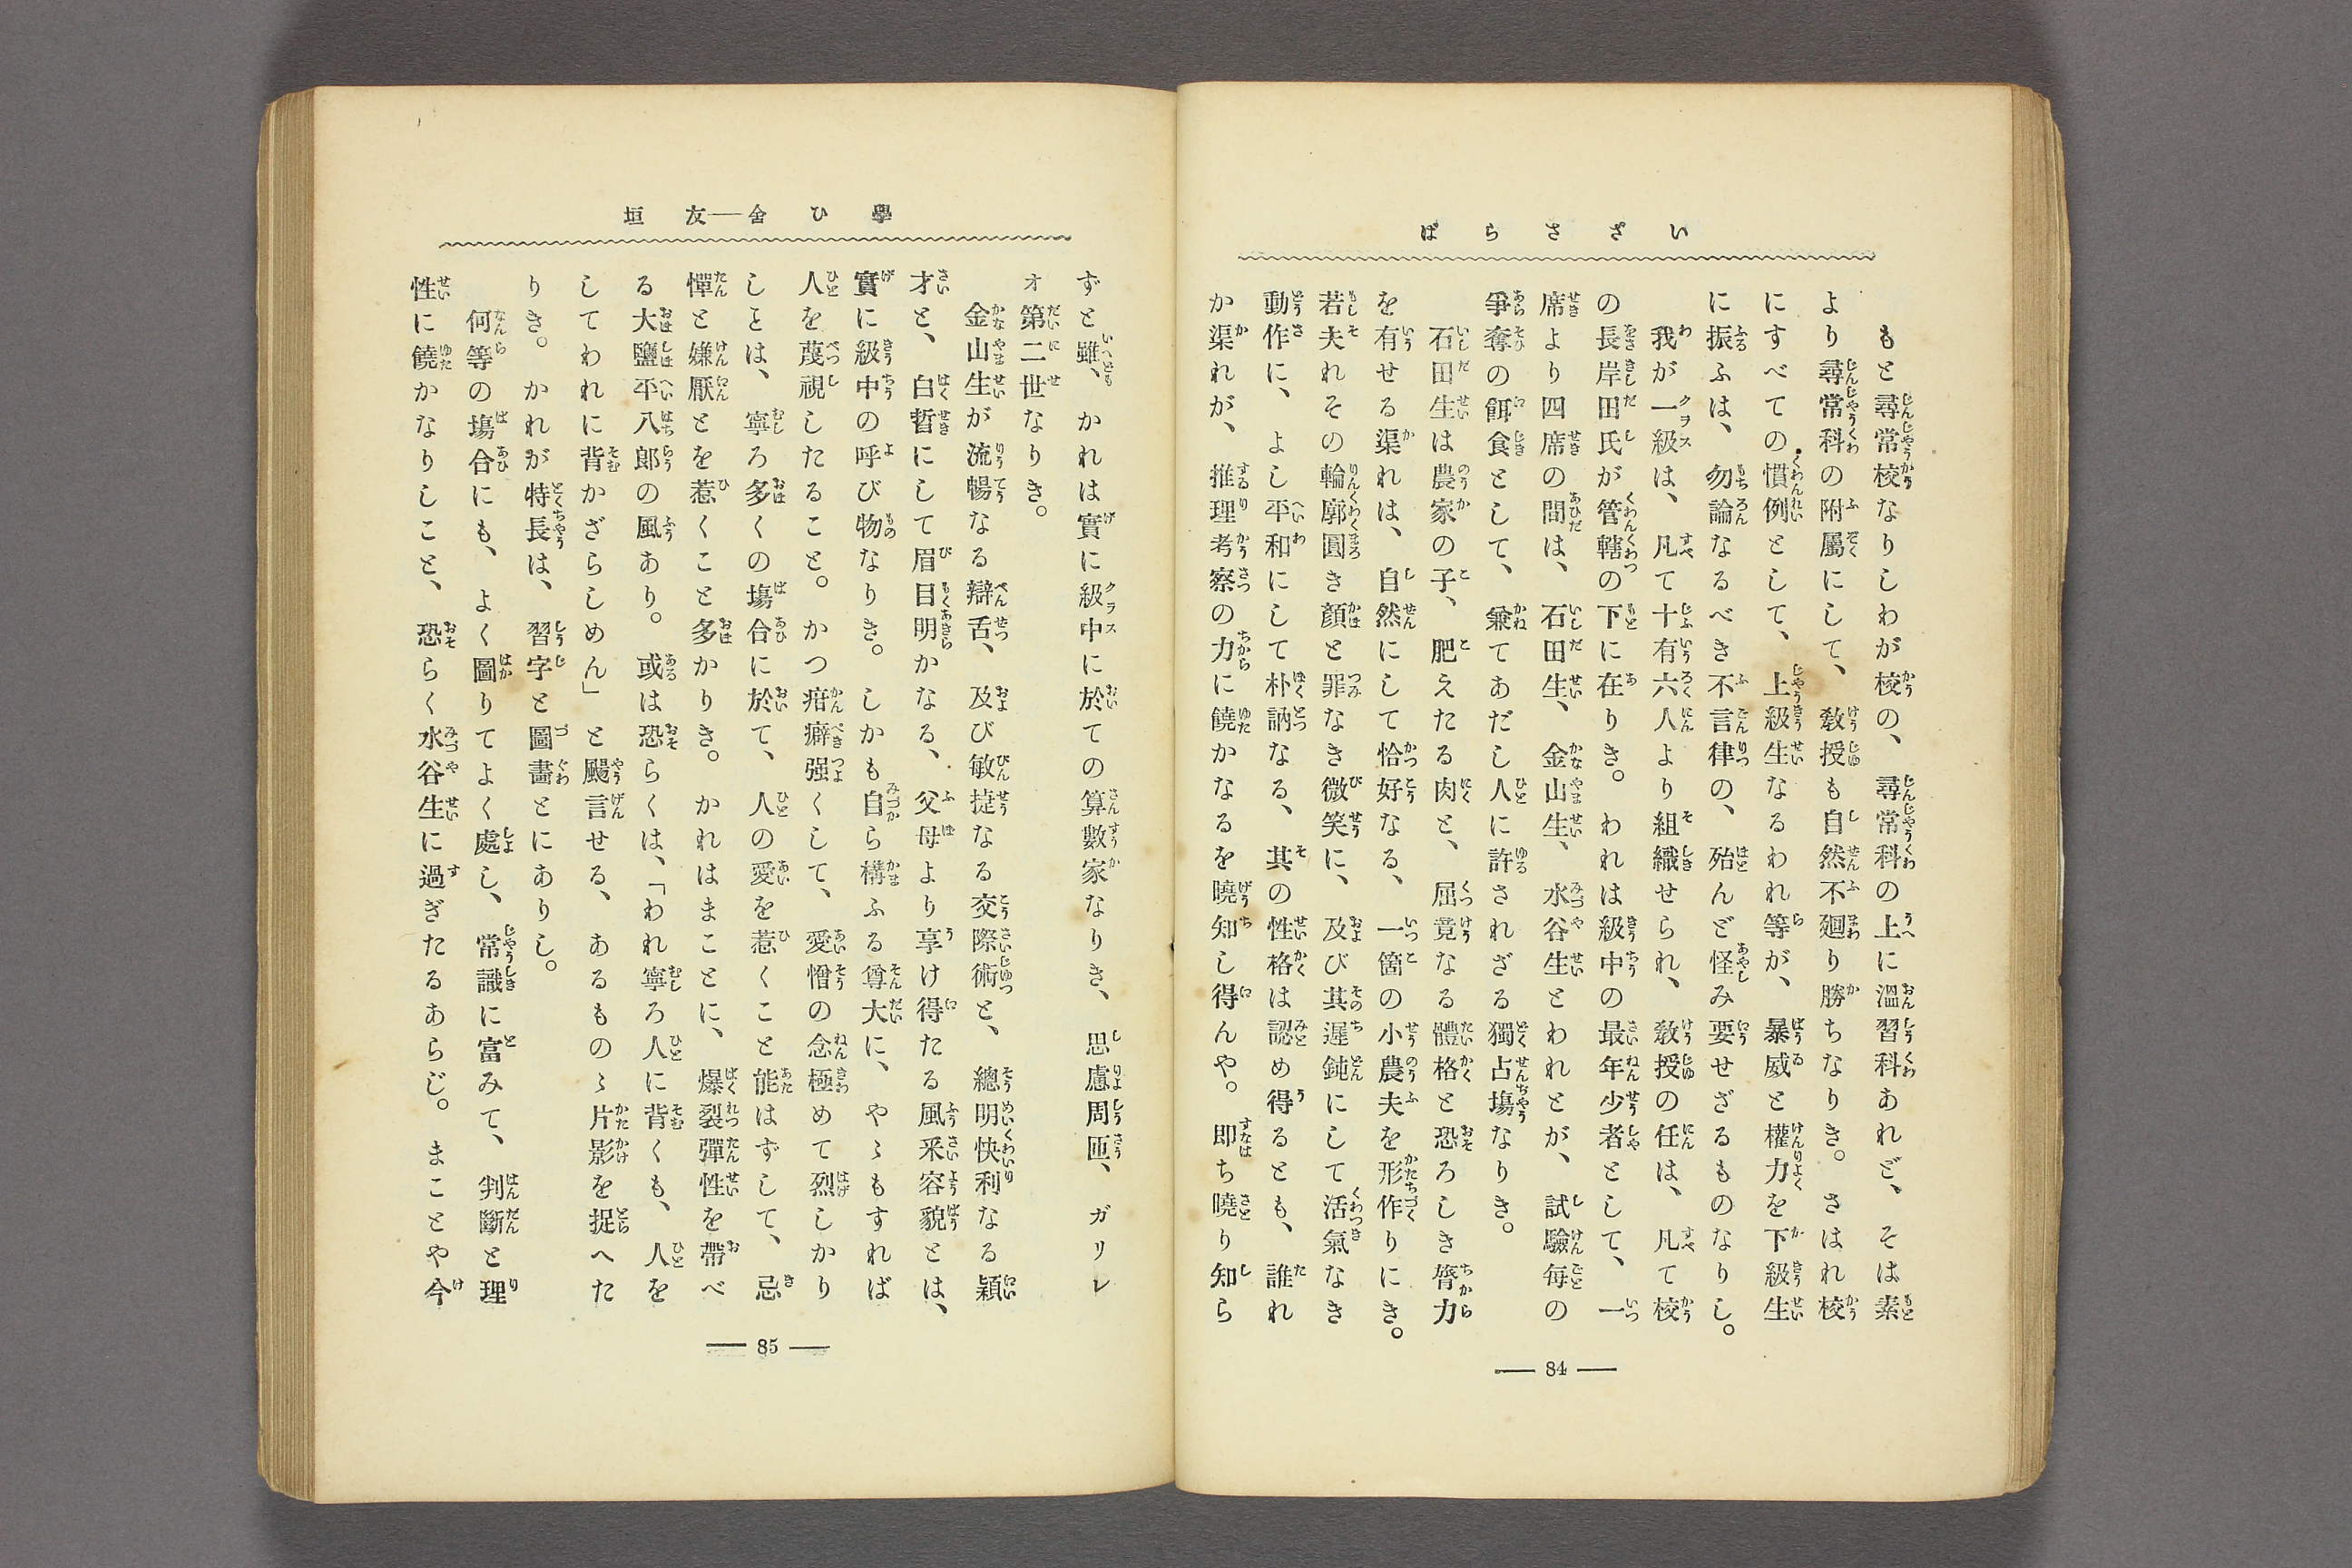 いざさらば
もと尋常校なりしわが校の、尋常科の上に溫習科あれど、そは素
より尋常科の附屬にして、敎授も自然不廻り勝ちなりき。さはれ校
にすべての慣例として、上級生なるわれ等が、暴威と權力を下級生
に振ふは、勿論なるべき不言律の、殆んど怪み要せざるものなりし。
我が一級は、凡て十有六人より組織せられ、敎授の任は、凡て校
の長岸田氏が管轄の下に在りき。われは級中の最年少者として、一
席より四席の間は、石田生、金山生、水谷生とわれとが、試驗每の
爭奪の餌食として、兼てあだし人に許されざる獨占塲なりき。
石田生は農家の子、肥えたる肉と、屈竟なる體格と恐ろしき膂力
を有せる渠れは、自然にして恰好なる、一箇の小農夫を形作りにき。
若夫れその輪廓圓き顏と罪なき微笑に、及び其遲鈍にして活氣なき
動作に、よし平和にして朴訥なる、其の性格は認め得るとも、誰れ
か渠れが、推理考察の力に饒かなるを曉知し得んや。卽ち曉り知ら
— 84 —
學ひ舍——友垣
ずと雖、かれは實に級中に於ての算數家なりき、思慮周匝、ガリレ
オ第二世なりき。
金山生が流暢なる辯舌、及び敏捷なる交際術と、總明快利なる穎
才と、白晢にして眉目明かなる、父母より享け得たる風釆容貌とは、
實に級中の呼び物なりき。しかも自ら構ふる尊大に、やゝもすれば
人を蔑視したること。かつ疳癖强くして、愛憎の念極めて烈しかり
しとは、寧ろ多くの塲合に於て、人の愛を惹くこと能はずして、忌
憚と嫌厭とを惹くこと多かりき。かれはまことに、爆裂彈性を帶べ
る大鹽平八郎の風あり。或は恐らくは、「われ寧ろ人に背くも、人を
してわれに背かざらしめん」と颺言せる、あるものゝ片影を捉へた
りき。かれが特長は、習字と圖畵とにありし。
何等の塲合にも、よく圖りてよく處し、常識に富みて、判斷と理
性に饒かなりしこと、恐らく水谷生に過ぎたるあらじ。まことや今
— 85 —